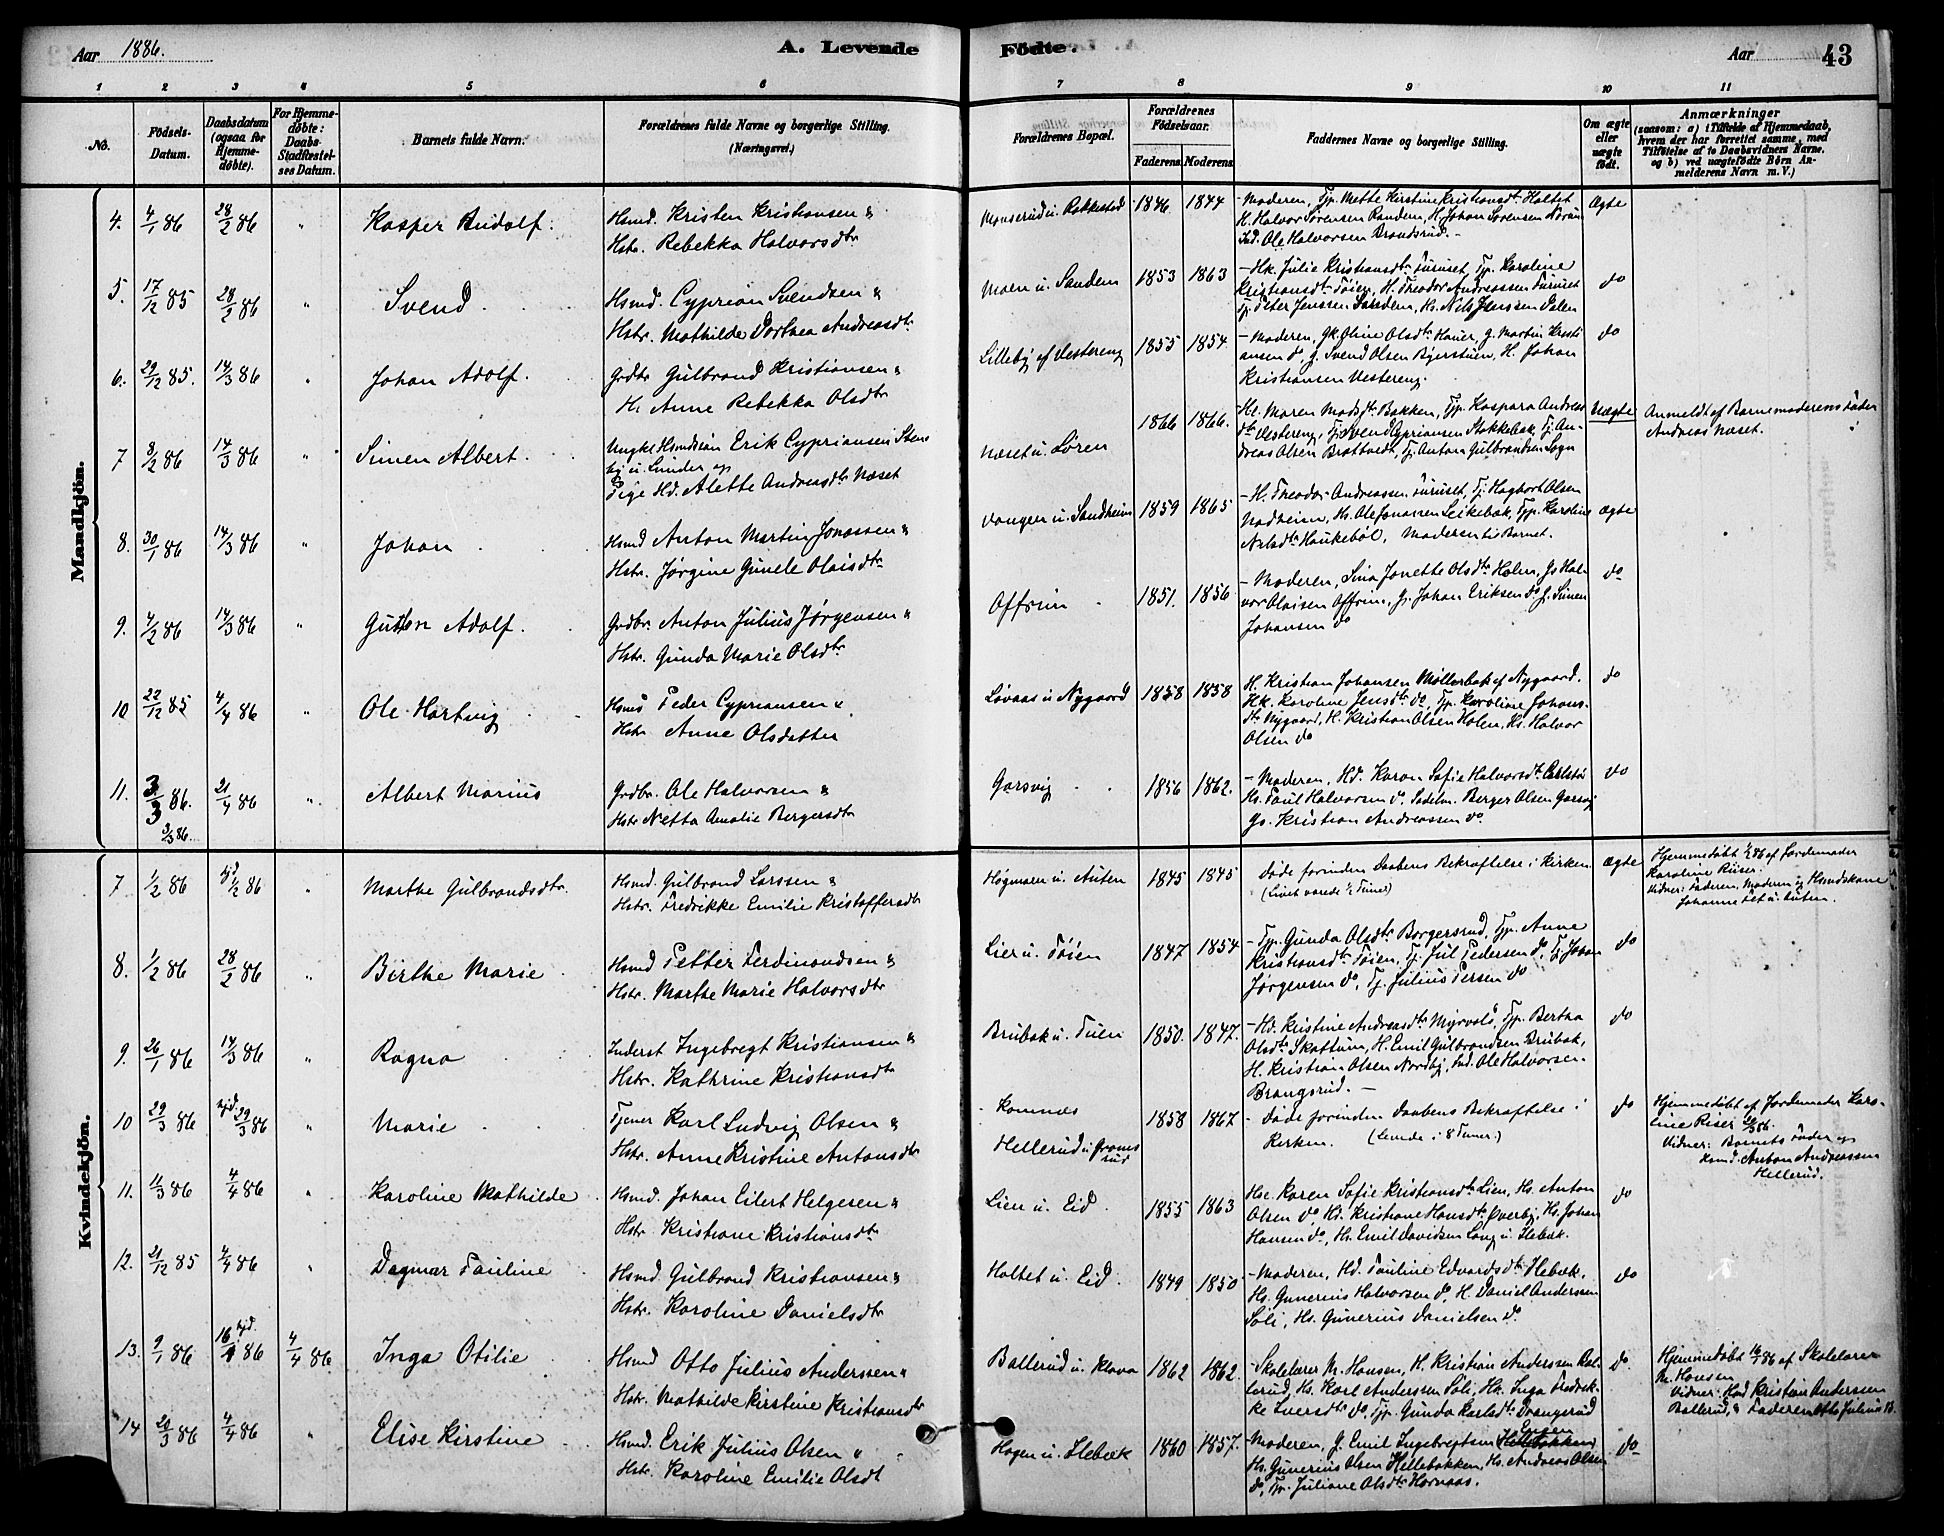 Aar 1886. A. Levende Fødte. Aar 43
1 2 3 4 5 6 7 8 9 10 11
No. Fødsels-Datum. Daabsdatum (ogsaa for Hjemmedøbte). For Hjemmedøbte: Daabs-Stadfæstelses Datum. Barnets fulde Navn. Forældrenes fulde Navne og borgerlige Stilling. (Næringsvei.) Forældrenes Bopæl. Forældrenes Fødselsaar. Faderens Moderens Faddernes Navne og borgerlige Stilling. Om ægte eller uægte født. Anmærkninger (saasom: a) i Tilfælde af Hjemmedaab, hvem der har forrettet samme, med Tilføielse af to Daabsvidners Navne. og b) ved uægtefødte Børn Anmelderens Navn m. V.)
Mandkjön.
4. 4/1 86 28/2 86 " Kasper Rudolf. Hsmd. Kristen Kristiansen &
Hstr. Rebekka Halvorsdtr
Monserud u. Rakkestad 1846 1844 - Moderen, Tjp. Mette Kirstine Kristiansdtr Holtet
H. Halvor Sørensen Randem, H. Johan Sørensen
Ind. Ole Halvorsen Brandsrud. -
Ægte
5. 17/12 85 28/2 86 " Svend Hsmd. Cyprian Svendsen &
Hstr. Mathilde Dorthea Andreasdtr
Moen u. Sandem 1853 1863 - Hk. Julie Kristiansdtr Furuset, Tjp. Karoline
Kristiansdtr Tøien, H. Theodor Andreassen Furuset
Tj. Peter Jenssen Sandem, Hs. Nils Jenssen Dalen
do
6. 29/12 85. 14/3 86 " Johan Adolf. Grdbr Gulbrand Kristiansen &
H. Anne Rebekka Olsdtr
Lilleby af Vestereng 1855 1854. - Moderen, Gk. Oline Olsdtr Hauer, G. Martin Kristi
ansen do, G. Svend Olsen Bjerstuen, H. Johan
Kristiansen Vestereng.
do
7 8/2 86 14/3 86 " Simen Albert. Ungkl Hsmdssøn Erik Cyprianssen Sten
by u. Lunder og
Pige Hd. Alette Andreasdtr Næset
Næset u. Løren 1866 1866. Hk. Maren Madsdtr Bakken, Tjp. Kaspara Andreas
dtr Vestereng, Tj. Svend Cypriansen Stokkebæk, Tj. An-
dreas Olsen Brattvedt, Tj. Anton Gulbrandsen Sogn
Uægte Anmeldt af Barnemoderens Fader
Andreas Næset.
8. 30/1 86 14/3 86 " Johan Hsmd Anton Martin Jonassen &
Hstr. Jørgine Gunele Olaisdtr
Vangen u. Sandheim 1859 1865 - H. Theodor Andreassen Furuset, Tj. Hagbart Olsen
Nadheim, Hs. Ole Jonassen Leikebæk, Tjp. Karoline
Nilsdtr Haukebøl, Moderen til Barnet.
ægte
9. 4/2 86 14/3 86 " Gustav Adolf. Grdbr. Anton Julius Jørgensen &
Hstr. Gunda Marie Olsdtr
Offrim 1851. 1856 - Moderen, Lina Jonette Olsdtr Holm, Gs Hal-
vor Olaisen Offrim, Gs Johan Eriksen do, G. Simen
Johansen do
do
10 22/12 85 4/4 86 " Ole Hartvig Hsmd Peder Cypriansen &
Hstr Anne Olsdatter
Løvaas u. Nygaard 1858 1858 H. Kristian Johansen Møllerbak af Nygaard.
Hk. Karoline Jensdtr do, Tjp. Karoline Johans-
dtr Nygaard, H. Kristian Olsen Holen, Hs. Halvor
Olsen do
do
11. 3/3 86. 21/4 86 " Albert Marius Grdbr. Ole Halvorsen &
3/3 86. Hstr Netta Amalie Bergersdtr
Garsvig 1856 1862. - Moderen, Hd. Karen Sofie Halvorsdtr
Hs. Paul Halvorsen do. Sadelm. Berger Olsen Garsvig
Gs. Kristian Andreassen do.
do
Kvindekjön.
7 1/2 86 hjd 1/2 86 " Marthe Gulbrandsdtr. Hsmd. Gulbrand Larssen &
Hstr. Fredrikke Emilie Kristoffersdtr
Høgmoen u. Auten 1845 1845 Døde forinden Daabens Bekræftelse i Kirken
(Livet varede 1/2 Time)
ægte Hjemmedøbt 1/2 86 af Jordemoder
Karoline Riser.
Vidner: Faderen, Moderen og Hsmdskone
Johanne Fet u. Auten.
8. 1/2 86 28/2 86 " Birthe Marie Hsmd Petter Ferdinandsen &
Hstr. Marthe Marie Halvorsdtr
Lier u. Tøien 1847 1854 - Tjp. Gunda Olsdtr Borgersrud, Tjp. Anne
Kristiansdtr Tøien, Tj. Jul Pedersen do, Tj Johan
Jørgensen do, Tj. Julius Persen do
do
9. 26/1 86 14/3 86 " Ragna Inderst Ingebregt Kristiansen &
Hstr. Kathrine Kristiansdtr
Brubak u. Tuen 1850. 1847. - Hd. Kristine Andreasdtr Myrvold, Tjp. Bertha
Olsdtr Skattum, H. Emil Gulbrandsen Brubak,
H. Kristian Olsen Nordby, Ind. Ole Halvorsen
Brangsrud. -
do
10 29/3 86 hjd. 29/3 86 " Marie Tjener Karl Ludvig Olsen &
Hstr. Anne Kristine Antonsdtr
Komnæs
Hellerud u. 1858 1867 - Døde forinden Daabens Bekræftelse i
Kirken. (Levede i 8 Timer.)
do Hjemmedøbt af Jordemoder Karo-
line Riser 29/3 86.
Vidner: Barnets Fader og
Hsmd. Anton Andreassen
Hellerud.
11. 11/3 86 4/4 86 " Karoline Mathilde Hsmd. Johan Eilert Helgesen &
Hstr. Kristiane Kristiansdtr
Lien u. Eid. 1855 1863 Hk. Karen Sofie Kristiansdtr Lien, Hs. Anton
Olsen do, Hd. Kristiane Hansdtr Øverby, Hs. Johan
Hansen do, Hs. Emil Davidsen Lang u. Slebæk.
do
12. 21/12 85 4/4 86 " Dagmar Pauline Hsmd. Gulbrand Kristiansen &
Hstr. Karoline Danielsdtr
Holtet u. Eid. 1849 1850 - Moderen, Hd. Pauline Edvardsdtr Slebæk,
Hs. Gunerius Halvorsen do, H. Daniel Anderssen
Søli, Hs. Gunerius Danielsen do
do
13. 9/1 86 hjd. 16/1 86 4/4 86 Inga Otilie Hsmd Otto Julius Anderssen &
Hstr. Mathilde Kirstine Kristiansdtr
Ballerud u. Klova 1862 1862. - Skolelærer M. Hansen, H. Kristian Anderssen Bal-
lerud, Hs. Karl Anderssen Søli, Hk. Inga Fredrik-
ke Iversdtr do, Tjp. Gunda Karlsdtr Drangsrud
do. Hjemmedøbt 16/1 86 af Skolelærer
M. Hansen
Vidner: Hsmd Kristian Anderssen
Ballerud, & Faderen Otto Julius A.
14 20/3 86 4/4 86 " Elise Kirstine Hsmd. Erik Julius Olsen &
Hstr. Karoline Emilie Olsdtr
Hagen u. Slebæk 1860 1857. - Moderen, G. Emil Ingebregtsen
Hs. Gunerius Olsen Hillebakken, Hs. Andreas Olsen
do, Tjp. Juliane Olsdtr Hornaas.
do